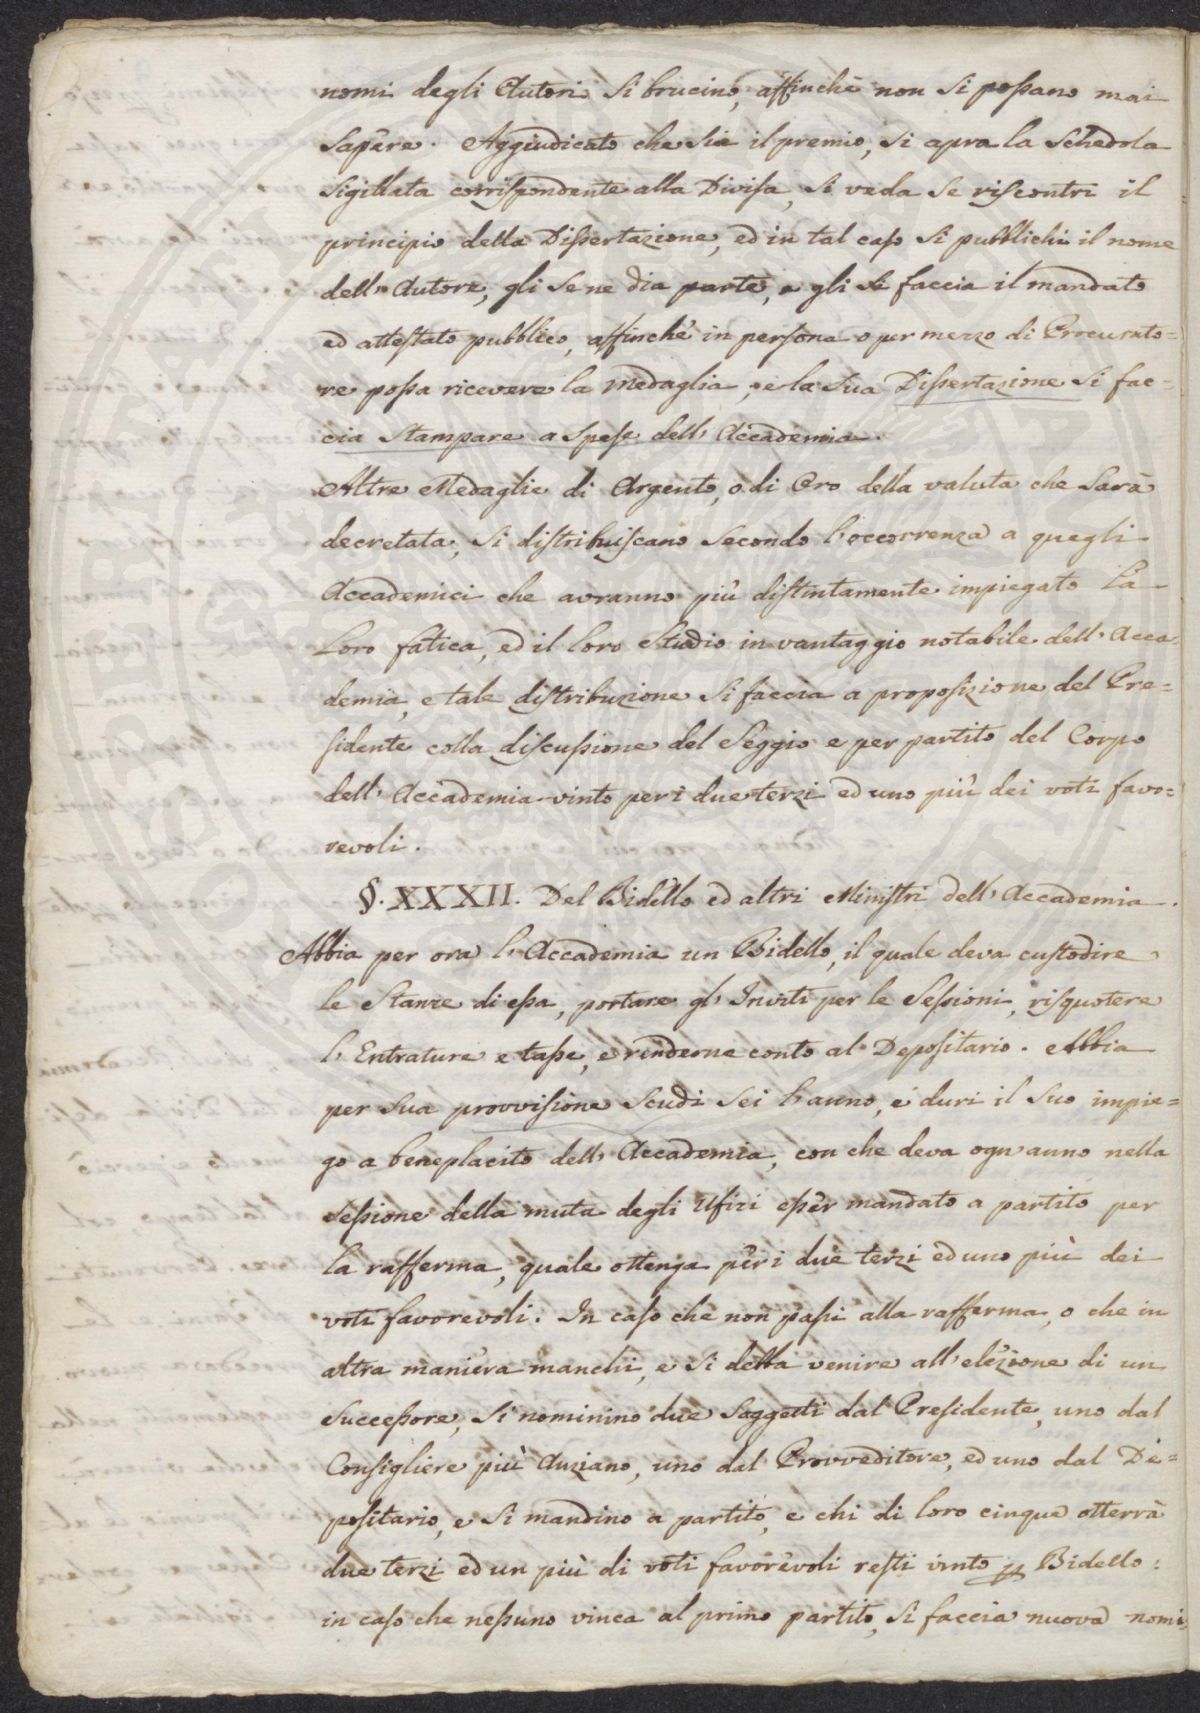 nomi degli Autori si brucino, affinchè non si possano mai
sapere. Aggiudicato che sia il premio, si apra la schedola
sigillata corrispondente alla Divisa, si veda se riscontri il
principio della Dissertazione, ed in tal caso si pubblichi il nome
dell'Autore, gli se ne dia parte, e gli si faccia il mandato
ed attestato pubblico, affinchè in persona o per mezzo di Procurato=
re possa ricevere la medaglia, e la sua Dissertazione si fac=
cia stampare a spese dell'Accademia.
Altre Medaglie di Argento, o di Oro della valuta che sarà
decretata, si distribuiscano secondo l'occorrenza a quegli
Accademici che avranno più distintamente impiegato la
loro fatica, ed il loro Studio in vantaggio notabile dell'Acca=
demia, e tale distribuzione si faccia a proposizione del Pre=
sidente colla discussione del Seggio e per partito del Corpo
dell'Accademia vinto per i due terzi ed uno più dei voti favo=
revoli.
§. XXXII. Del Bidello ed altri Ministri dell'Accademia.
Abbia per ora l'Accademia un Bidello, il quale deva custodire
le Stanze di essa, portare gl'Inviti per le Sessioni, risquotere
l'Entrature e tasse, e renderne conto al Depositario. Abbia
per sua provvisione Scudi sei l'anno, e duri il suo impie=
go a beneplacito dell'Accademia, con che deva ogn'anno nella
sessione della muta degli Ufizi esser mandato a partito per
la rafferma, quale ottenga per i due terzi ed uno più dei
voti favorevoli. In caso che non passi alla rafferma, o che in
altra maniera manchi, e si debba venire all'elezione di un
successore, si nominino due soggetti dal Presidente, uno dal
Consigliere più Anziano, uno dal Provveditore, ed uno dal De=
positario, e si mandino a partito, e chi di loro cinque otterrà
due terzi ed un più di voti favorevoli resti vinto Bidello:
in caso che nessuno vinca al primo partito, si faccia nuova nomi=